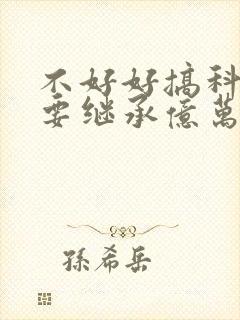 不好好搞科
要继承億萬
孫希岳